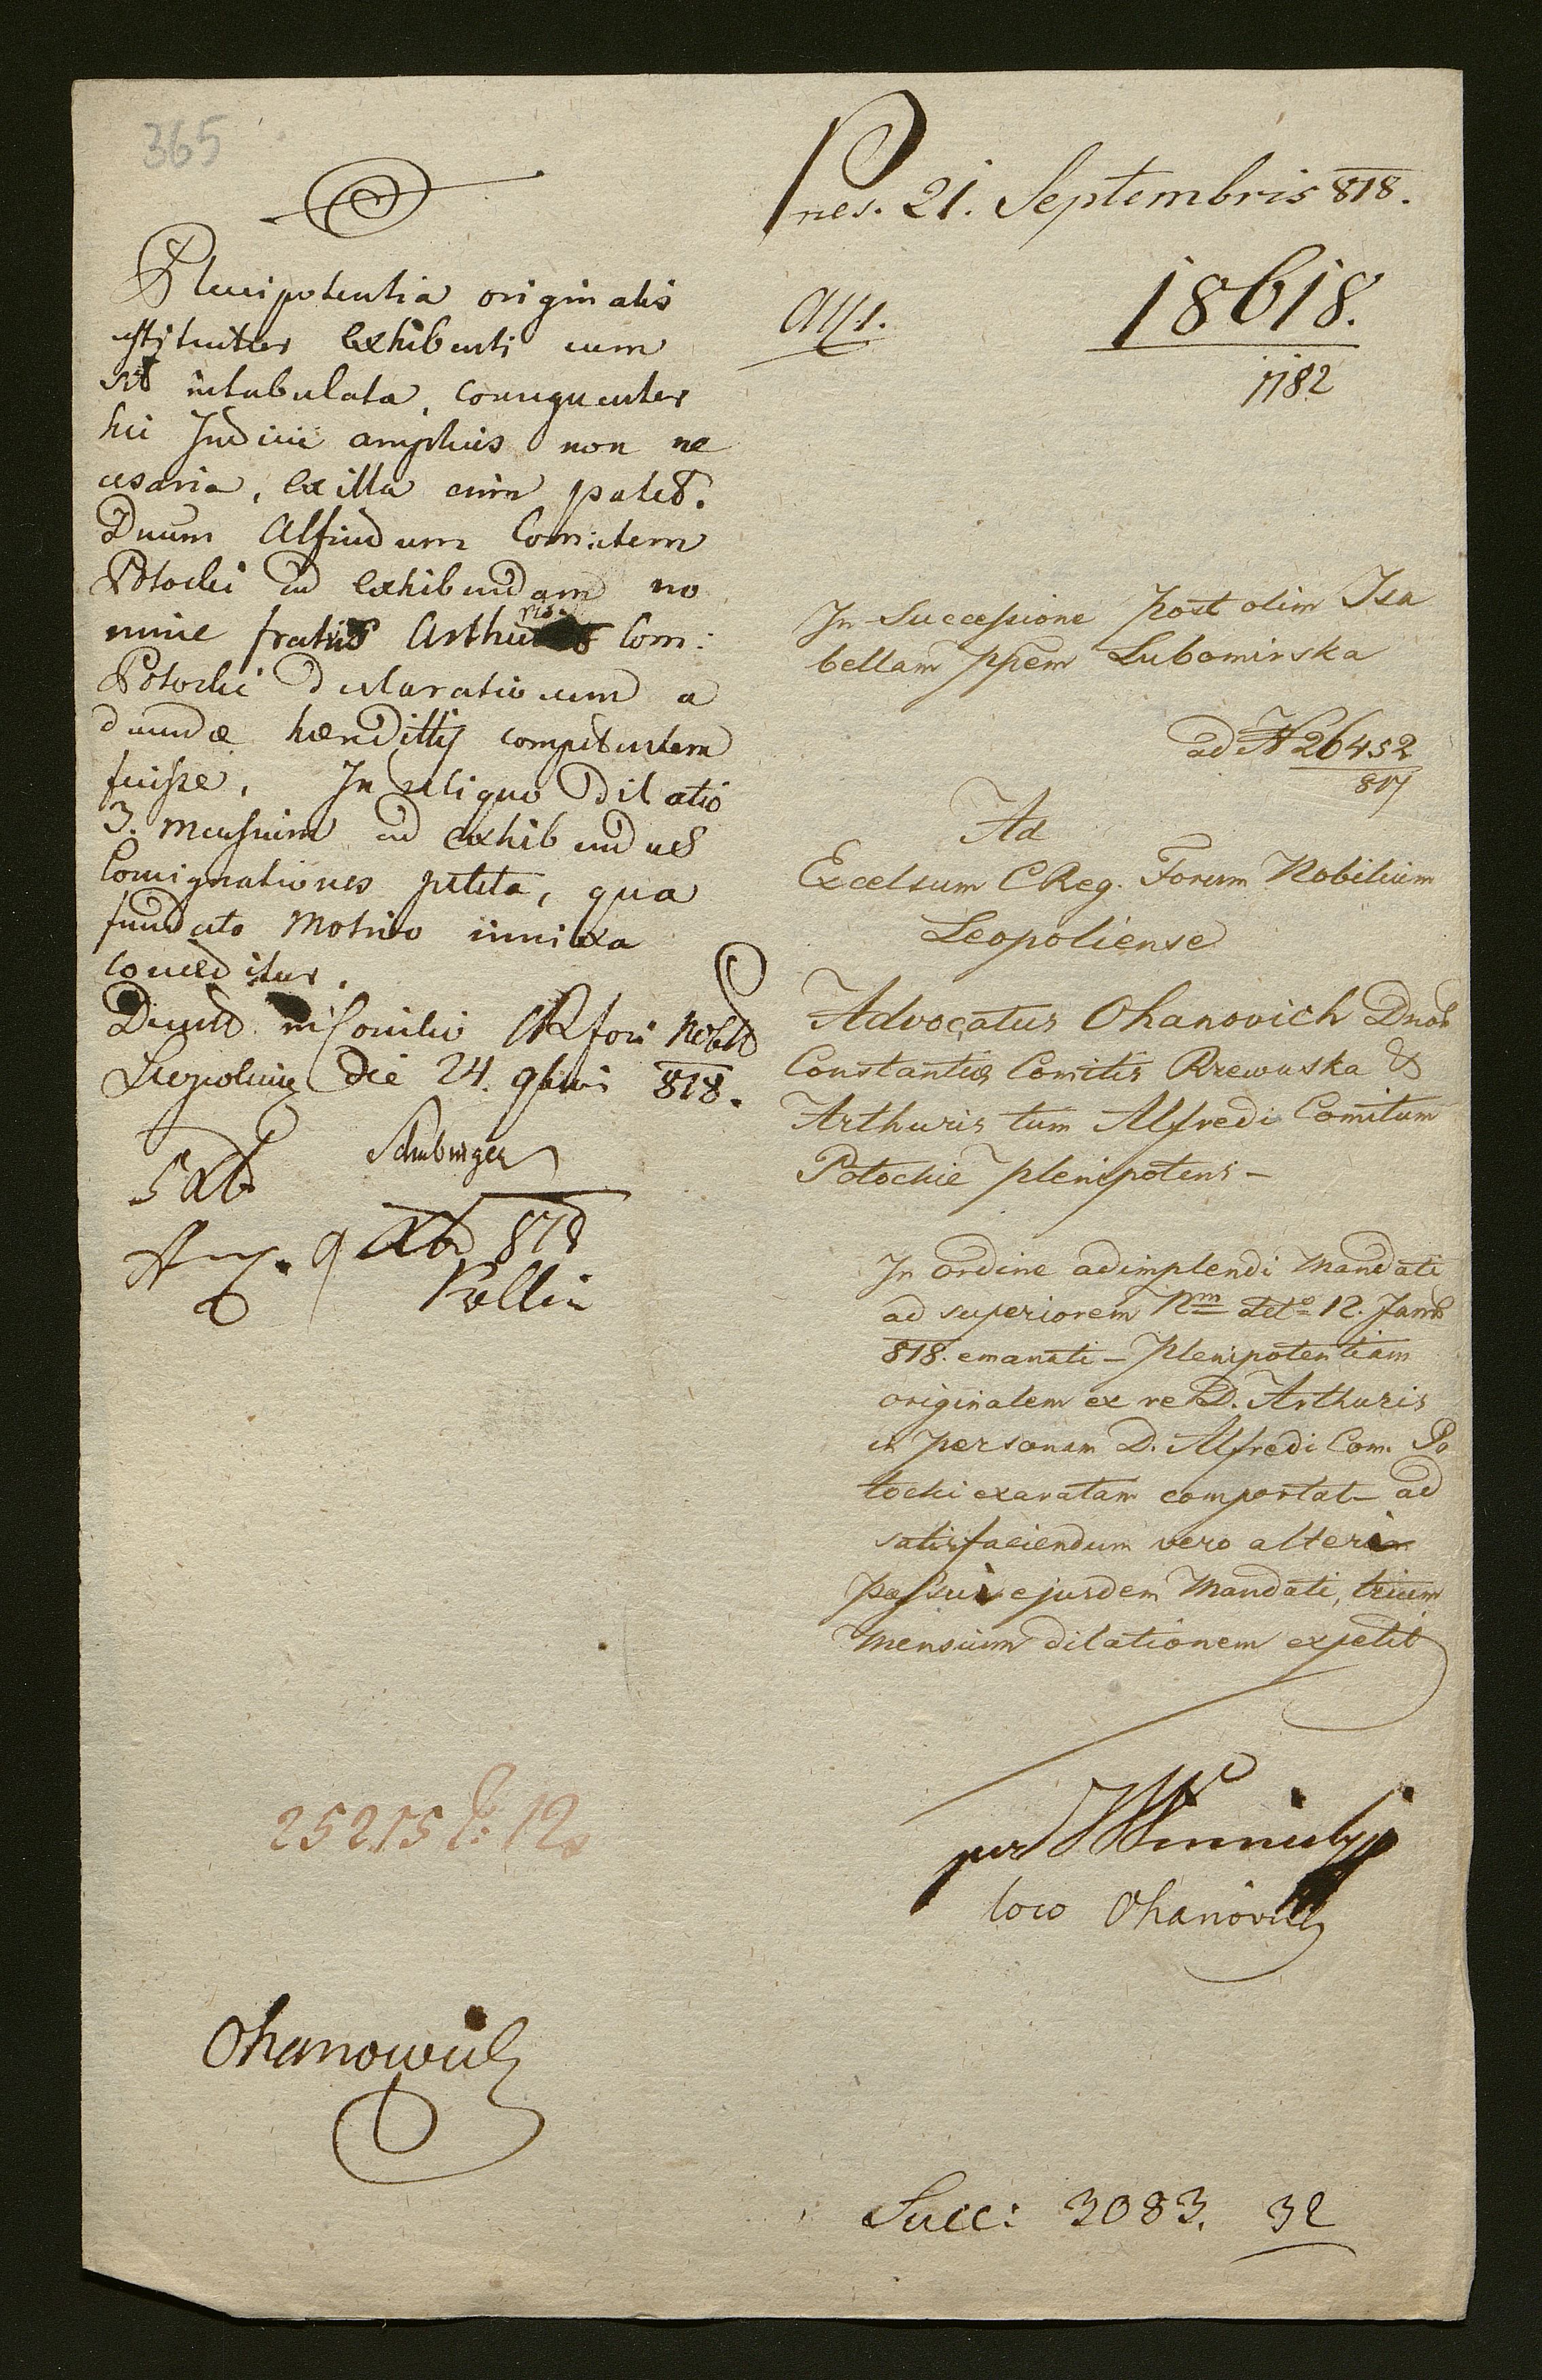 365
Plenipotentia originalis
estituitur exhibenti cum
sit intabulata, consequenter
hic Judicii amplius non ne
cesaria, ex illa enim patet.
Dnum Alfredum Comitem
Potocki ad exhibendam no
mine fratris Arthuris Com:
Potocki declarationem a
deundæ hæredittis competentem
fuisse. In reliquo dilatio
3. Mensium ad exhibendas
Consignationes petita, qua
fundato Motivo innixa
conceditur.
Decret. in Consilio CR fori Nobil
Leopoliens die 24. 9bris 818.
5 Xb
Schubinger
9 Xb 818
Kollin
25215 12
Ohanowich
Pnes. 21. Septembris 818.
All 1.
18618.
1182
In Successione post olim Isa
bellam ppem Lubomirska
ad N 26452
817
Ad
Excelsum CReg. Forum Nobilium
Leopoliense
Advocatus Ohanovich Dnæ
Constantiæ Comitis Rzewuska &
Arthuris tum Alfredi Comitum
Potockie plenipotens –
In ordine adimplendi Mandati
ad superiorem Nrm ddto 12. Janr
818. emanati – Plenipotentiam
originalem ex re D. Arthuris
in personam D. Alfredi Com. Po
tocki exaratam comportat – ad
satisfaciendum vero alteri
passui ejusdem Mandati, trium
Mensium dilationem expetit
per
loco Ohanovich
Succ: 3083. 32